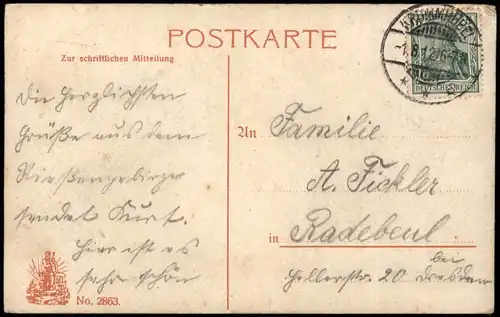 POSTKARTE
Zur schriftlichen Mitteilung
KRUMMHÜBEL
-1.8.12.
DEUTSCHES REICH
Die herzlichsten
Grüße aus dem
Riesengebirge
sendet Kurt.
Hier ist es
sehr schön
No. 2863.
An Familie
A. Fickler
in Radebeul
bei
Hellerstr. 20 Dresden